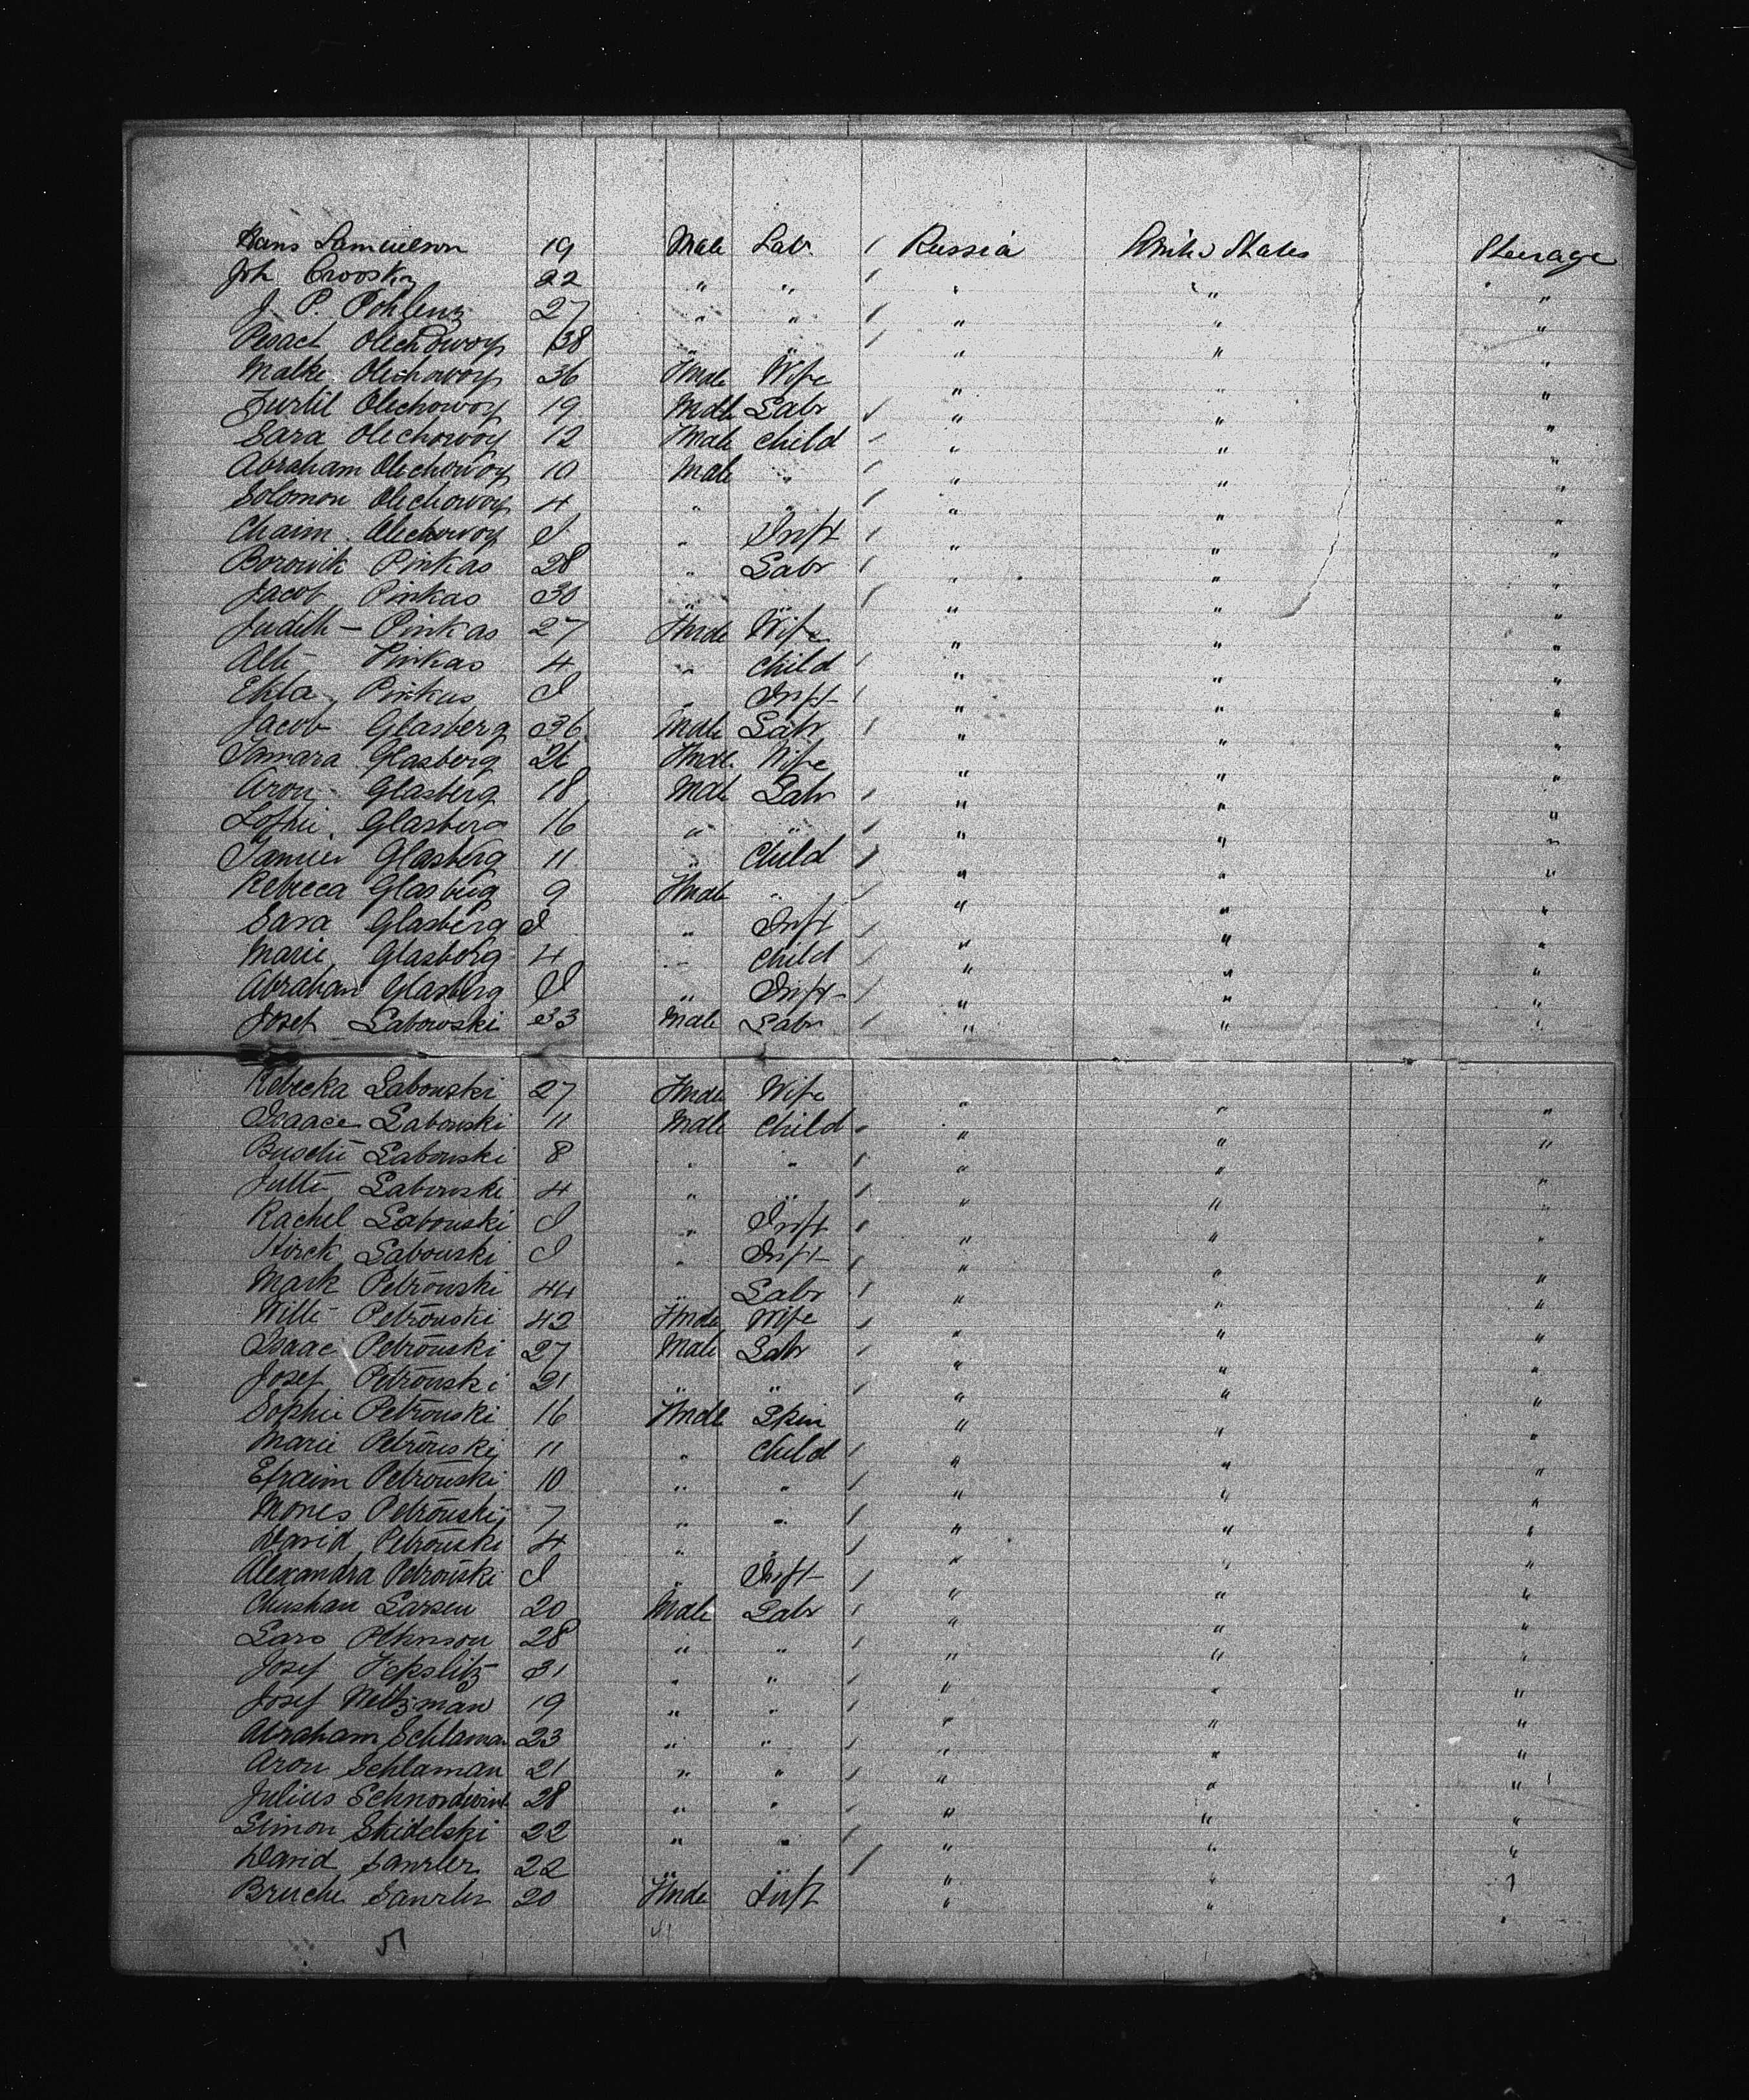 Hans Samuelson 19 Male Labr / Russia United States Steerage
Joh 22 " " / " " "
J. P. Pohlenz 27 " " / " " "
Pesach Olechowoy 38 " " / " " "
Malke Olechowoy 36 Fmale Wife " " "
Zurtil Olechowoy 19 Male Labr / " " "
Sara Olechowoy 12 Fmale Child / " " "
Abraham Olechowoy 10 Male " / " " "
Solomon Olechowoy 4 " " / " " "
Chaim Olechowoy I " Inft / " " "
Borowik Pinkas 28 " Labr / " " "
Jacob Pinkas 30 " " / " " "
Judith - Pinkas 27 Fmale Wife " " "
Alte Pinkas 4 " Child / " " "
Ekta Pinkus I " Inft / " " "
Jacob Glasberg 36 Male Labr / " " "
Tamara Glasberg 26 Fmale Wife " " "
Aron Glasberg 18 Male Labr / " " "
Glasberg 16 " " / " " "
Samuel Glasberg 11 " Child / " " "
Rebecca Glasberg 9 Fmale " / " " "
Sara Glasberg I " Inft / " " "
Marie Glasberg 4 " Child / " " "
Abraham Glasberg I " Inft / " " "
Josef Labowski 33 Male Labr / " " "
Rebecka Labowski 27 Fmale Wife " " "
Isaac Labowski 11 Male Child / " " "
Labowski 8 " " / " " "
Jutte Labowski 4 " " / " " "
Rachel Labowski I " Inft / " " "
Hirck Labowski I " Inft / " " "
Mark Petrouski 44 " Labr / " " "
Witte Petrouski 42 Fmale Wife / " " "
Isaac Petrouski 27 Male Labr / " " "
Josef Petrouski 21 " " / " " "
Sophie Petrouski 16 Fmale Spin " " "
Marie Petrouski 11 " Child / " " "
Efraim Petrouski 10 " " / " " "
Mones Petrouski 7 " " / " " "
David Petrouski 4 " " / " " "
Alexandra Petrouski I " Inft / " " "
Christian Larsen 20 Male Labr / " " "
Lars Petersson 28 " " / " " "
Josef 31 " " / " " "
Josef Weitzman 19 " " / " " "
Abraham Schlaman 23 " " / " " "
Aron Schlaman 21 " " / " " "
Julius 28 " " / " " "
Simon Skidelski 22 " " / " " "
David 22 " " / " " "
Bruche 20 Fmale " "
51 41